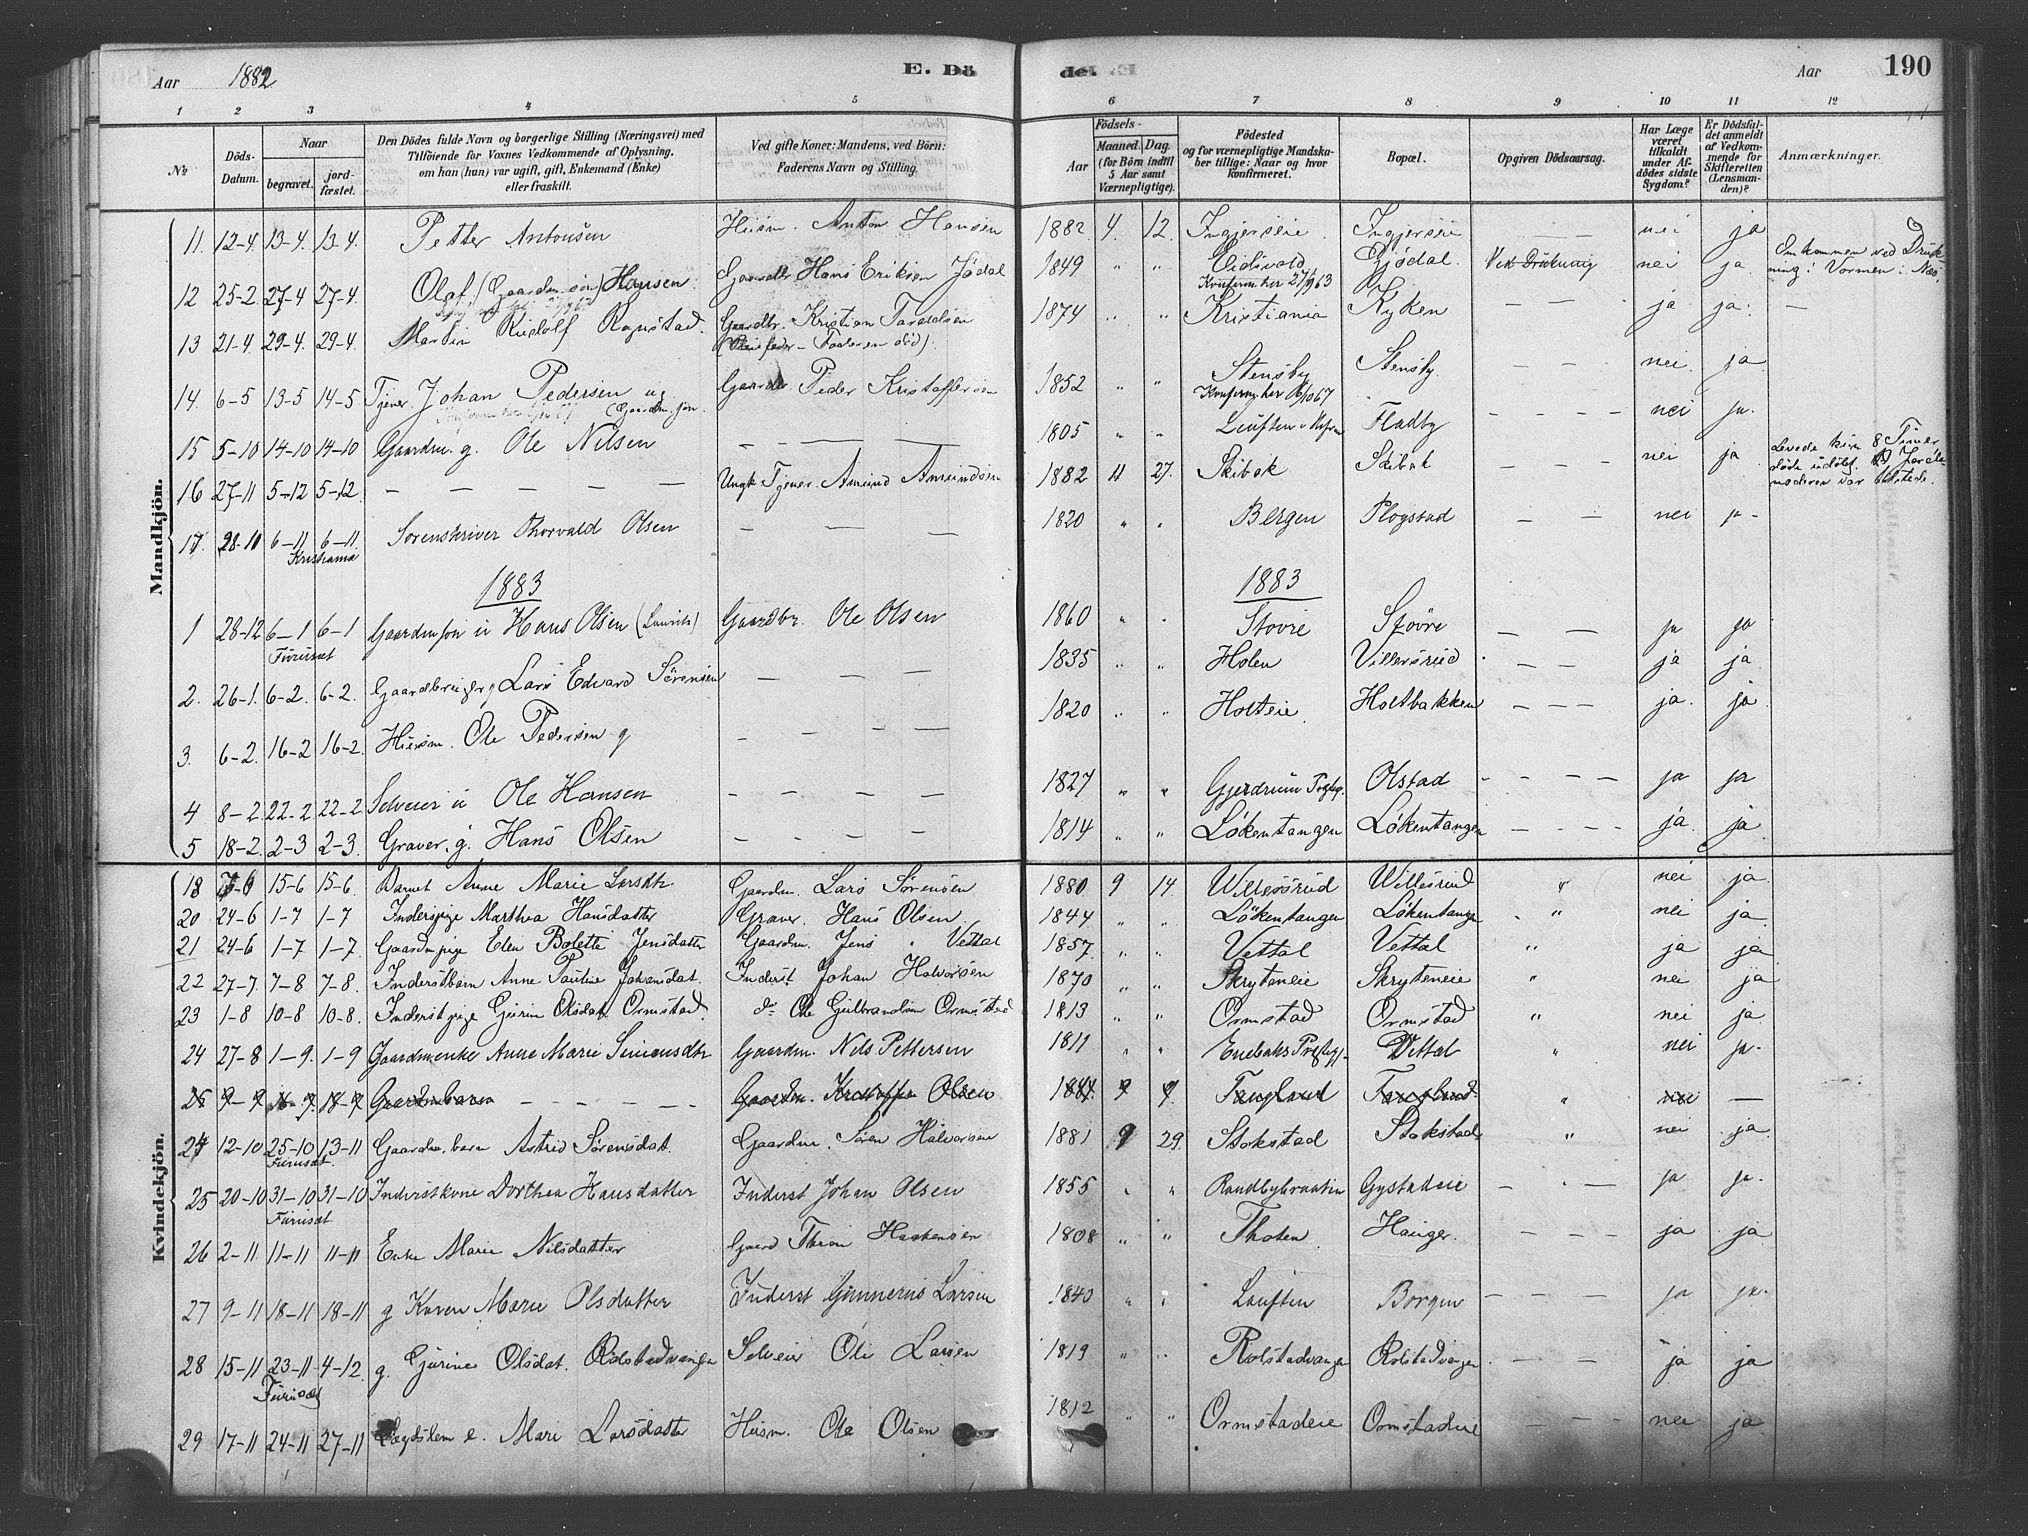 Aar 1882 E. Dö
de. Aar 190
1 2 3 4 5 6 7 8 9 10 11 12
No Döds-Datum. Naar begravet. jord-fæstet. Den Dödes fulde Navn og borgerlige Stilling (Næringsvei) med Tilföiende for Voxnes Vedkommende af Oplysning, om han (hun) var ugift, gift, Enkemand (Enke) eller fraskilt. Ved gifte Koner: Mandens, ved Börn: Faderens Navn og Stilling. Födsels- Aar Maaned. Dag. (for Börn indtil 5 Aar samt Værnepligtige). Födested og for værnepligtige Mandskaber tillige: Naar og hvor konfirmeret. Bopæl. Opgiven Dödsaarsag. Har Læge været tilkaldt under Afdödes sidste Sygdom? Er Dödsfaldet anmeldt af Vedkommende for Skifteretten (Lensmanden)? Anmærkninger.
Mandkjön.
11. 12-4. 13-4. 13-4. Petter Antonsen Husm. Anton Hansen 1882. 4. 12. Ingjerseie Ingjerseie — nei ja
12 25-2. 27-4 27-4. Olaf (Gaardm. sön) Hansen Gaardbr. Hans Eriksen Jödal 1849 " " Eidsvold Konferm. her 27/9 63 Gjödal. Ved Drukning nei ja. Omkommen ved Drukning i Vormen i Næs.
13 21-4. 29-4. 29-4. Martin Rudolf Rognstad. Gaardbr. Kristian Taraldsen (Pleiefader – Faderen död) 1874 " " Kristiania Kyken — — — ja ja. —
14. 6-5 13-5 14-5 Tjener. Johan Pedersen ug (Gaardm. sön. Gaardbr. Peder Kristoffersen 1852 " " Stensby Konferm. her /10 67 Stensby. — — nei. ja
15 5-10 14-10 14-10 Gaardm. g. Ole Nilsen — — — 1805 " " Fladby — — — — nei ja.
16 27-11 5-12 5-12. — — — — — Ungk Tjener. Amund Amundsen 1882 11 27. Skibak Skibak nei ja Levede kun 8 Timer döde udöbt.
17. 28-10 6-11 6-11 Kristiania Sorenskriver Thorvald Olsen — — — 1820 " " Bergen Plogstad — — nei ja-
1883 1883
1 28-12 6-1 6-1 Furuset Gaardmsön u Hans Olsen (Laurits) Gaardbr. Ole Olsen 1860 " " Stovre Støvre — — ja ja
2. 26-1. 6-2. 6-2. Gaardbruger g Lars Edvard Sörensen — — — 1835 " " Holen Villersrud — — ja ja
3. 6-2. 16-2 16-2. Husm. Ole Pedersen g — — — — 1820 " " Holteie Holtbakken — — — ja. ja
4 8-2 22-2 22-2 Selveier u Ole Hansen — — — — 1827 " " Gjerdrum Prgtg. Olstad — — — — ja ja
5 18-2. 2-3 2-3. Graver. g. Hans Olsen — — — — 1814 " " Lökentangen Lökentangen — — — — ja. ja
Kvindekjön.
18 -6 15-6 15-6. Barnet Anne Marie Larsdtr Gaardm. Lars Sörensen 1880 9 14. Willersrud Willesrud " nei ja.
20 24-6 1-7 1-7 Inderspige Marthea Hansdatter Graver. Hans Olsen 1844 " " Lökentangen Lökentangen " nei ja.
21 24-6 1-7 1-7. Gaardm pige Elen Bolette Jensdatter Gaardm. Jens " Vettal 1857. " " Vettal Vettal " ja ja
22 27-7. 7-8 7-8. Inderstbarn Anne Pauline Johansdat. Inderst Johan Halvorsen 1870 " " Skryteneie Skryteneie " nei ja
23 1-8 10-8 10-8. Inderst pige Gurin Olsdat. Ormstad. do Ole Gulbrandsen Ormstad 1813 " " Ormstad Ormstad " nei ja
24 27-8 1-9. 1-9 Gaardmenke Anne Marie Simensdtr Gaardm. Nils Pettersen 1811 " " Enebaks Prestgj- Vettal " nei ja.
25 9-9 18-9 Gaardm barn — — — — — Gaardm. Kristoffer Olsen 9 9 Fuglerud Fuglerud. " nei —
24 12-10 25-10 Furuset 13-11 Gaardm. barn Astrid Sörensdat. Gaardm. Sören Halvorsen 1881 9 29. Stokstad Stokstad " nei ja.
25 20-10 31-10 Furuset 31-10 Inderstkone Dorthea Hansdatter Inderst Johan Olsen 1855 " " Randbybraaten Gystadeie — — — ja ja.
26 2-11 11-11 11-11 Enke Marie Nilsdatter Gaard Thron Haakensen 1808 " " Thoten. Hauger. — — — ja ja
27 9-11 18-11 18-11 g Karen Marie Olsdatter Inderst Gunnerus Larsen 1840 " " Borgen — — — — ja ja.
28 15-11 23-11 Furuset 4-12. g. Gurine Olsdat. Rolstadvangen Selveier Ole Larsen 1819 " " Rolstadvangen Rolstadvangen — — — ja ja
29 17-11 24-11 27-11 Lægdslem e. Mari Larsdatter Husm. Ole Olsen 1812 " " Ormstadeie Ormstadeie — — — nei ja